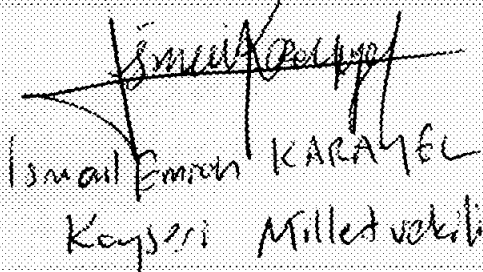 İsmail Karayel
İsmail Emrah KARAYEL
Kayseri Milletvekili